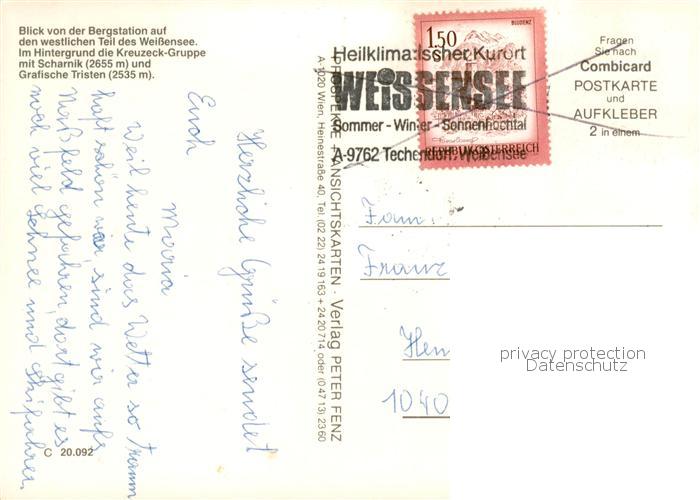 Blick von der Bergstation auf
den westlichen Teil des Weißensee.
Im Hintergrund die Kreuzeck-Gruppe
mit Scharnik (2655 m) und
Grafische Tristen (2535 m).
Herzliche Grüße sendet
Euch
Maria
Weil heute das Wetter so traum
haft schön war sind wir aufs
Naßfeld gefahren, dort gibt es
noch viel Schnee und Schifahrer.
C 20.092
PROSPEKTE + ANSICHTSKARTEN · Verlag PETER FENZ
A-1020 Wien, Heinestraße 40, Tel. (02 22) 24 19 163 + 24 20 714, oder (0 47 13) 23 60
Heilklimatischer Kurort
WEISSENSEE
Sommer - Winter - Sonnenhochtal
A-9762 Techendorf, Weißensee
BLUDENZ
1.50
REPUBLIK ÖSTERREICH
Fragen
Sie nach
Combicard
POSTKARTE
und
AUFKLEBER
2 in einem
Fam.
Franz
Hen
1040
privacy protection
Datenschutz